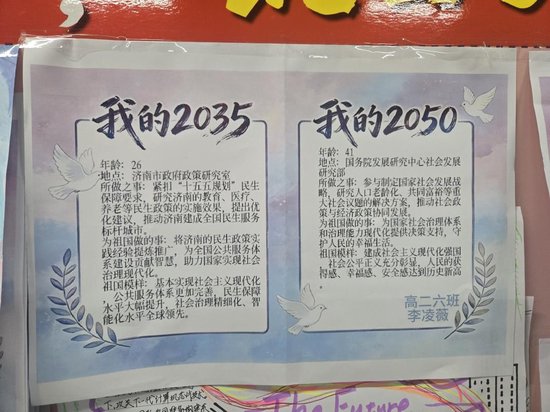 我的2035
年龄：26
地点：济南市政府政策研究室
所做之事：紧扣“十五五规划”民生
保障要求，研究济南的教育、医疗、
养老等民生政策的实施效果，提出优
化建议，推动济南建成全国民生服务
标杆城市。
为祖国做的事：将济南的民生政策实
践经验提炼推广，为全国公共服务体
系建设贡献智慧，助力国家实现社会
治理现代化。
祖国模样：基本实现社会主义现代化
，公共服务体系更加完善，民生保障
水平大幅提升，社会治理精细化、智
能化水平全球领先。
我的2050
年龄：41
地点：国务院发展研究中心社会发展
研究部
所做之事：参与制定国家社会发展战
略，研究人口老龄化、共同富裕等重
大社会议题的解决方案，推动社会政
策与经济政策协同发展。
为祖国做的事：为国家社会治理体系
和治理能力现代化提供决策支持，守
护人民的幸福生活。
祖国模样：建成社会主义现代化强国
，社会公平正义充分彰显，人民的获
得感、幸福感、安全感达到历史新高
高二六班
李凌薇
The Future